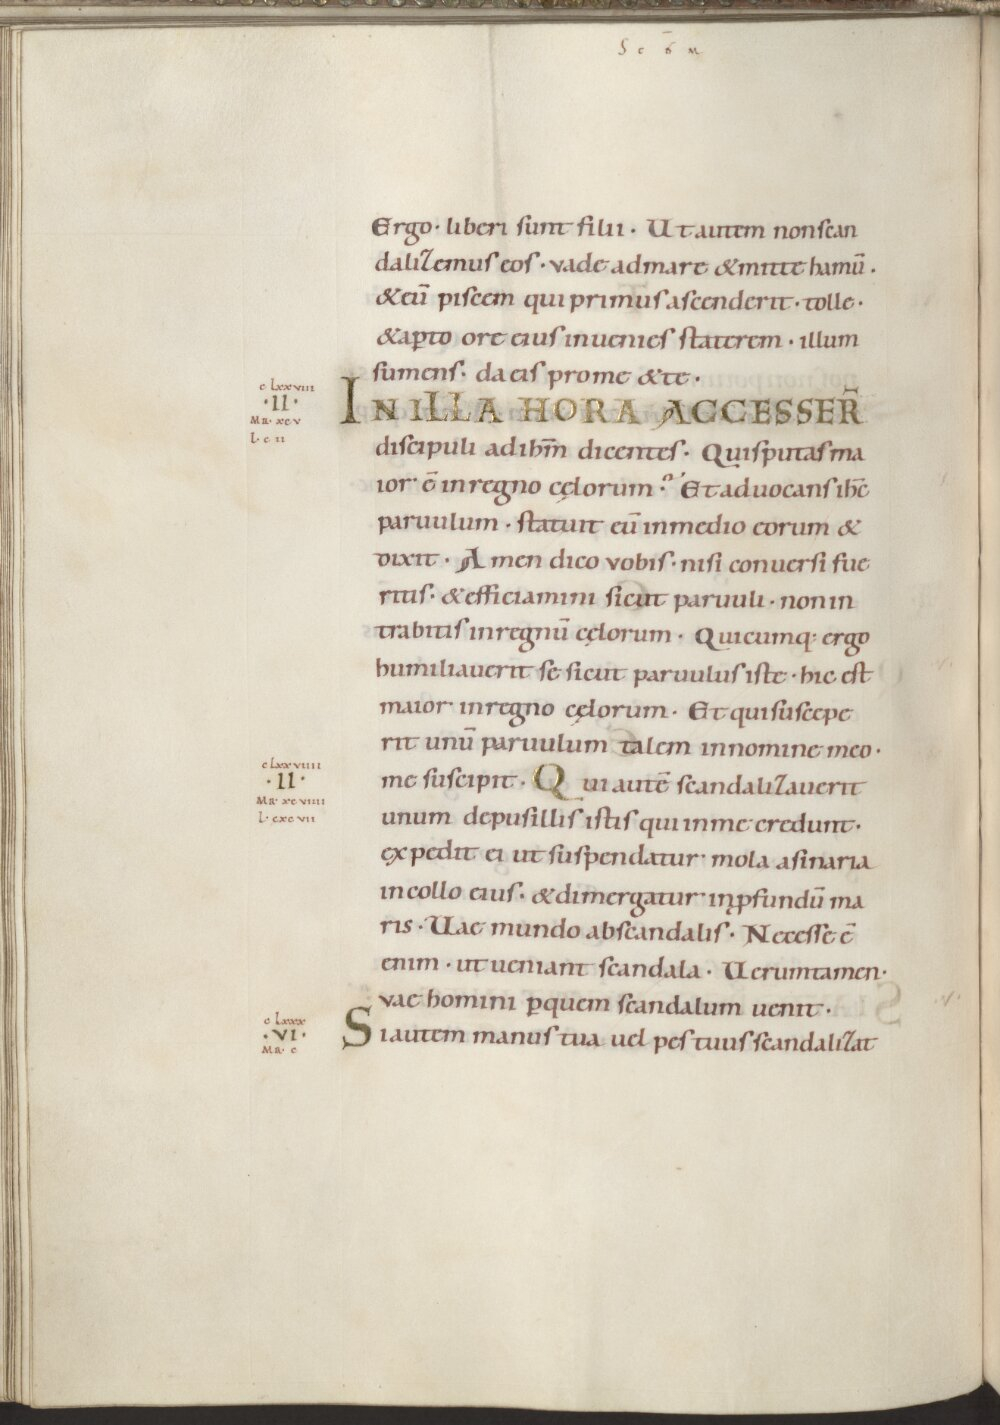 S c̄ ō M
Ergo · liberi sunt filii · Ut autem non scan
dalizemus eos · vade ad mare & mitte hamū ·
& eū piscem qui primus ascenderit · tolle ·
& aꝑto ore eius invenies staterem · illum
sumens · da eis pro me & te ·
c lxxviii
· II ·
MR · xcv
L · c ii
IN ILLA HORA ACCESSER̄
discipuli ad ihm̄ dicentes · Quis putas ma
ior ē in regno cęlorum ? Et advocans ihc̄
parvulum · statuit eū in medio eorum &
dixit · Amen dico vobis · nisi conversi fue
ritis · & efficiamini sicut parvuli · non in
trabitis in regnū cęlorum · Quicumq: ergo
humiliaverit se sicut parvulus iste · hic est
maior in regno cęlorum · Et qui suscepe
rit unū parvulum talem in nomine meo ·
c lxxviiii
· II ·
MR · xcviiii
L · cxcvii
me suscipit · Qui autē scandalizaverit
unum de pusillis istis qui in me credunt ·
expedit ei ut suspendatur mola asinaria
in collo eius · & dimergatur in ꝓfundū ma
ris · Vae mundo ab scandalis · Necesse ē
enim · ut veniant scandala · Verumtamen ·
vae homini ꝑ quem scandalum venit ·
c lxxx
· VI ·
MR · c
Si autem manus tua vel pes tuus scandalizat